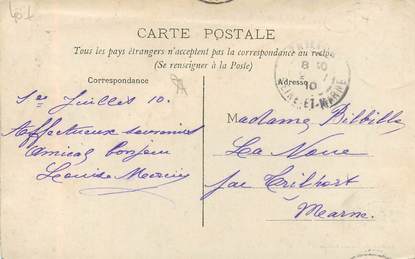 CARTE POSTALE
Tous les pays étrangers n'acceptent pas la correspondance au recto
(Se renseigner à la Poste)
Correspondance
Adresse
8 30
10
SEINE-ET-MARNE
1er Juillet 10.
Affectueux souvenirs
Amical bonjour
Louise
Madame
La Noue
par Trilport
Marne.